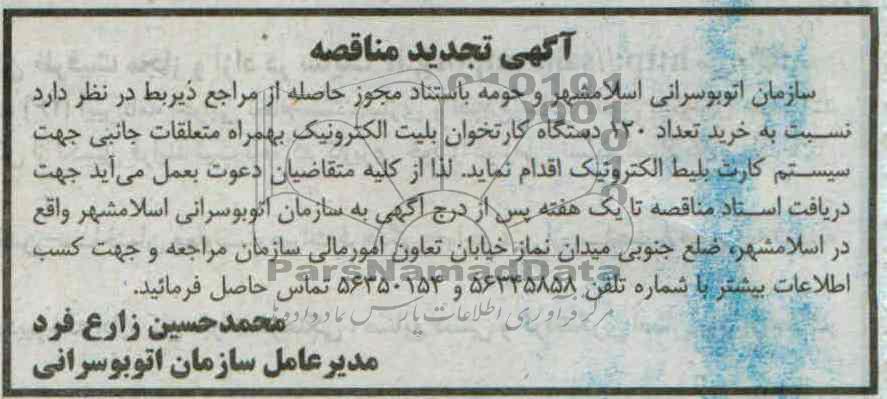 آگهی تجدید مناقصه
سازمان اتوبوسرانی اسلامشهر و حومه باستناد مجوز حاصله از مراجع ذیربط در نظر دارد
نسبت به خرید تعداد ۱۲۰ دستگاه کارتخوان بلیت الکترونیک بهمراه متعلقات جانبی جهت
سیستم کارت بلیط الکترونیک اقدام نماید. لذا از کلیه متقاضیان دعوت بعمل می‌آید جهت
دریافت اسناد مناقصه تا یک هفته پس از درج آگهی به سازمان اتوبوسرانی اسلامشهر واقع
در اسلامشهر، ضلع جنوبی میدان نماز خیابان تعاون امورمالی سازمان مراجعه و جهت کسب
ParsNamadData
اطلاعات بیشتر با شماره تلفن ۵۶۳۴۵۸۵۸ و ۵۶۳۵۰۱۵۴ تماس حاصل فرمائید.
مرکز فرآوری اطلاعات پارس نماد داده‌ها
محمدحسین زارع فرد
مدیرعامل سازمان اتوبوسرانی